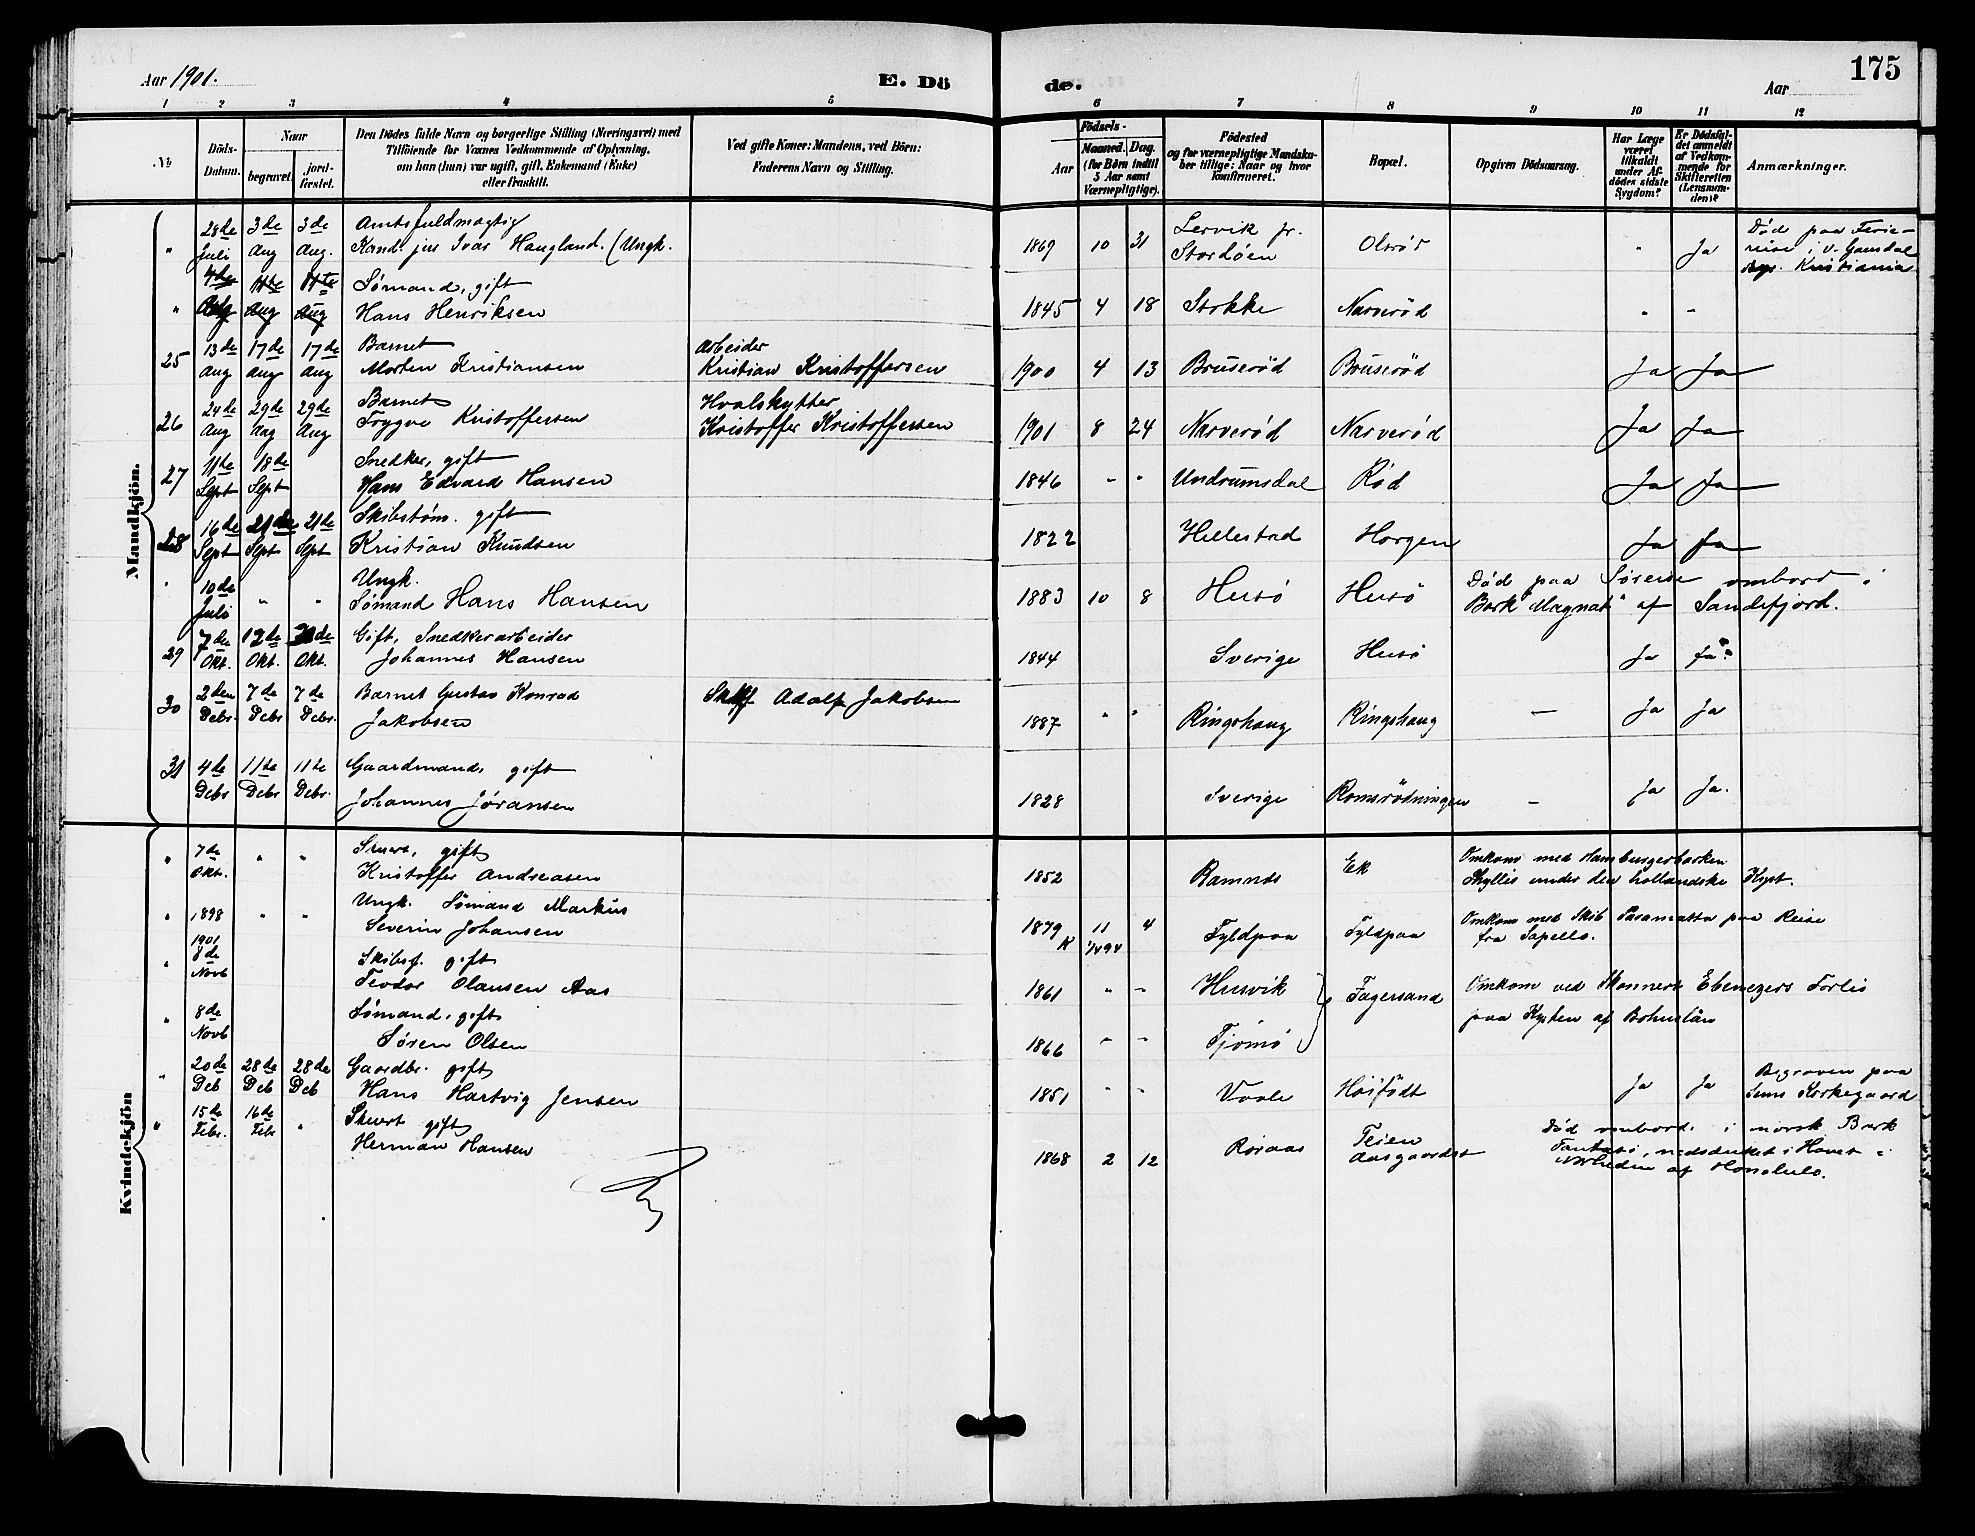 Aar 1901.
E. Dö
de.
Aar
175
1 2 3 4 5 6 7 8 9 10 11 12
№
Döds-Datum.
Naar
begravet.
jord-fæstet.
Den Dödes fulde Navn og borgerlige Stilling (Næringsvei) med
Tilföiende for Voxnes Vedkommende af Oplysning,
om han (hun) var ugift, gift, Enkemand (Enke)
eller fraskilt.
Ved gifte Koner: Mandens, ved Börn:
Faderens Navn og Stilling.
Födsels-
Aar
Maaned. Dag.
(for Börn indtil
5 Aar samt
Værnepligtige).
Födested
og for værnepligtige Mandska-
ber tillige: Naar og hvor
konfirmeret.
Bopæl.
Opgiven Dödsaarsag.
Har Læge
været
tilkaldt
under Af-
dödes sidste
Sygdom?
Er Dödsfal-
det anmeldt
af Vedkom-
mende for
Skifteretten
(Lensman-
den)?
Anmærkninger.
Mandkjön.
" 28de Juli 3de Aug 3de Aug. Amtsfuldmægtig
Kand. jus Ivar Haugland. (Ungk. 1869 10 31 Lervik pr. Stordøen Olsrød " Ja Død paa Ferie-
reise i
Kristiania
" 4de Aug 11te Aug 11te Aug Sømand, gift
Hans Henriksen 1845 4 18 Stokke Narverød " "
25 13de Aug 17de Aug 17de Aug Barnet
Morten Kristiansen Arbeider
Kristian Kristoffersen 1900 4 13 Bruserød Bruserød Ja Ja
26 24de Aug 29de Aug 29de Aug Barnet
Trygve Kristoffersen Hvalskytter
Kristoffer Kristoffersen 1901 8 24 Narverød Narverød Ja Ja
27 11de Sept 18de Sept Snedker, gift
Hans Edvard Hansen 1846 " " Undrumsdal Rød Ja Ja
28 16de Sept 21de Sept 21de Sept Skibstøm. gift
Kristian Knudsen 1822 Hillestad Horgen Ja Ja
" 10de Juli " " Ungk.
Sømand Hans Hansen 1883 10 8 Husö Husö Död paa Søreise ombord i
Bark "Magnat" af Sandefjord.
29 7de Okt. 12de Okt. Okt. Gift, Snedkerarbeider
Johannes Hansen 1844 Sverige Husö Ja Ja
30 2den Debr 7de Debr 7de Debr. Barnet Gustav Konrad
Jakobsen Adolf Jakobsen 1887 " " Ringshaug Ringshaug — Ja Ja
31 4de Debr 11te Debr 11te Debr. Gaardmand, gift
Johannes Jøransen 1828 Sverige Romsrødningen — Ja Ja.
Kvindekjön
" 7de Okt. " " Stuert, gift
Kristoffer Andreasen 1852 Ramnes Ek Omkom med Hamburgerbarken
Thyllis under den hollandske Kyst.
" 1898 " " Ungk. Sømand Markus
Severin Johansen 1879 11 4 Fyldpaa Fyldpaa Omkom med Skib Paramatta paa Reise
fra Sapello.
" 1901 8de Novb Skibsf. gift
Teodor Olausen Aas 1861 " " Husvik Fagersand Omkom ved Skonnert Ebenezers Forlis
paa Kysten af Bohuslän
" 8de Novb Sømand, gift
Søren Olsen 1866 " " Tjømø
" 20de Deb 28de Deb 28de Deb Gaardbr. gift
Hans Hartvig Jensen 1851 " " Vaale Höifödt Ja Ja Begraven paa
Sems Kirkegaard
" 15de Febr. 16de Febr " Stuert gift
Herman Hansen 1868 2 12 Röraas Teien
Aasgaardst Död ombord i norsk Bark
Fantasi, nedsænket i Havet i
Nærheden af Honolulu.